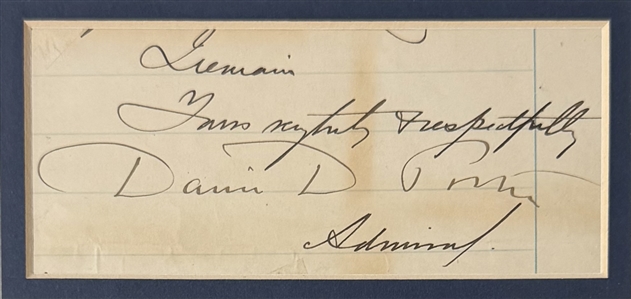 I remain
Yours very truly & respectfully
David D Porter
Admiral.